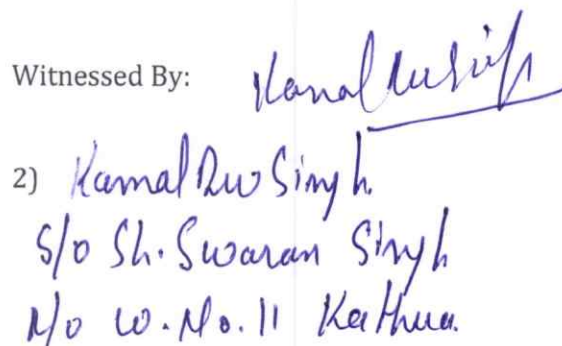 Witnessed By:
2) Kamal Dev Singh
S/o Sh. Swaran Singh
R/o W. No. 11 Kathua.